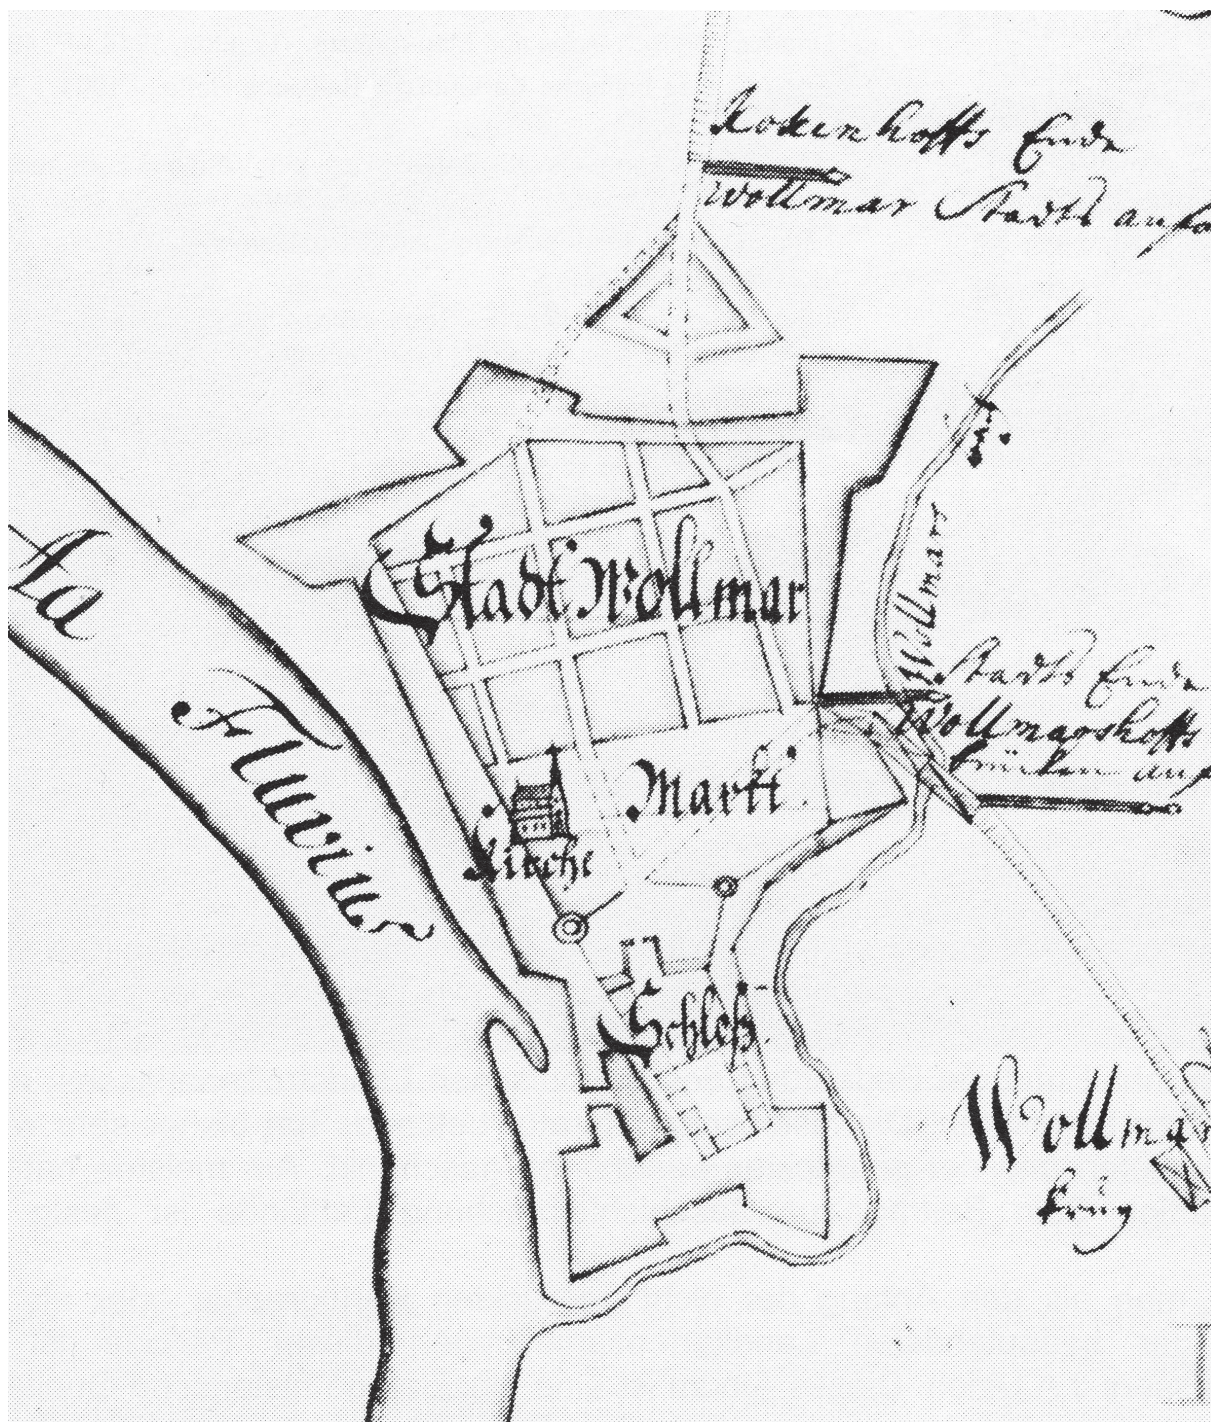 Kokenhoffs Ende
Wollmar Stadts
Aa
Fluvius
Stadt Wollmar
Wollmars
Stadts Ende
Wollmarshoffs
Brücken
Markt
Kirche
Schloß
Wollmar
krüg